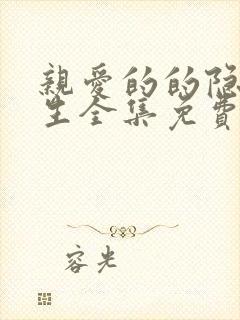 親愛的的隐
生全集免費
容光